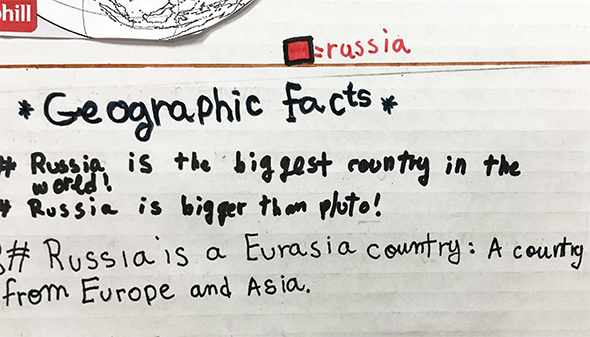 hill
=russia
*Geographic facts*
# Russia is the biggest country in the
world!
# Russia is bigger than pluto!
# Russia is a Eurasia country: A country
from Europe and Asia.